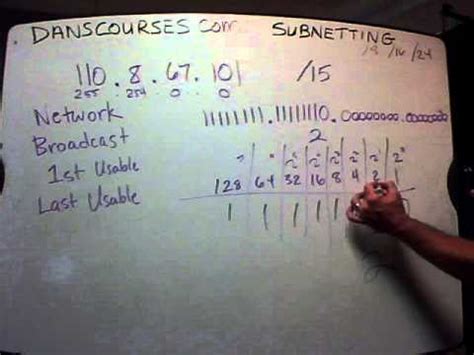 DANSCOURSES.com SUBNETTING
/8 /16 /24
110.8.67.101 /15
255 254 0 0
Network 11111111.11111110.00000000.00000000
Broadcast 2
1st Usable
128 64 32 16 8 4 2 1
Last Usable 1 1 1 1 1